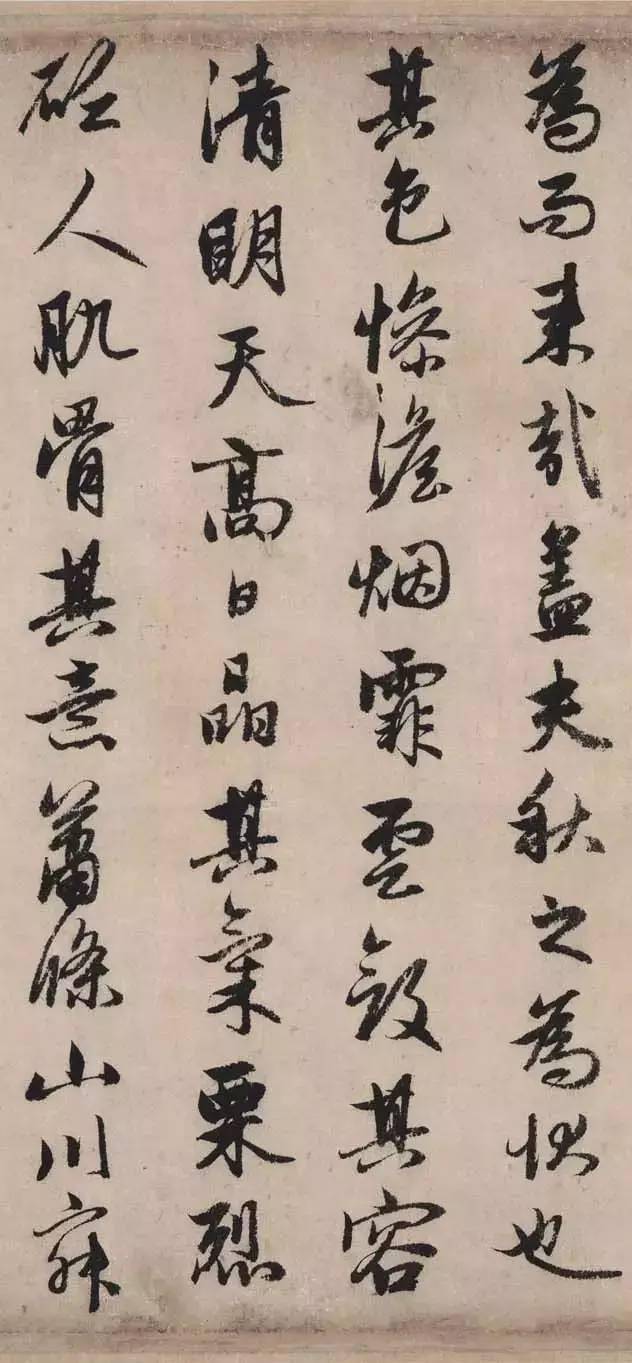 為而来哉盖夫秋之為状也
其色惨澹烟霏雲斂其容
清明天髙日晶其氣栗烈
砭人肌骨其意蕭條山川寂